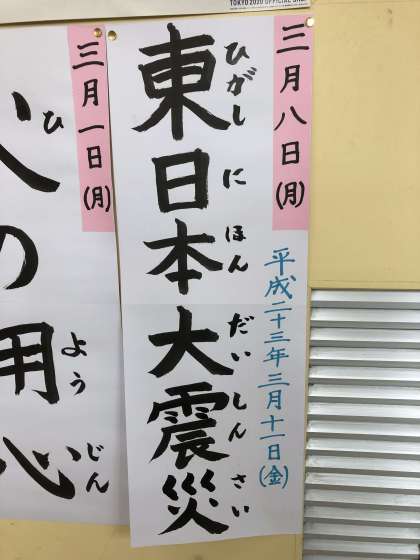 TOKYO 2020 OFFICIAL
三月八日(月)
東日本大震災
ひがしにほんだいしんさい
平成二十三年三月十一日(金)
三月一日(月)
の用心
ひようじん